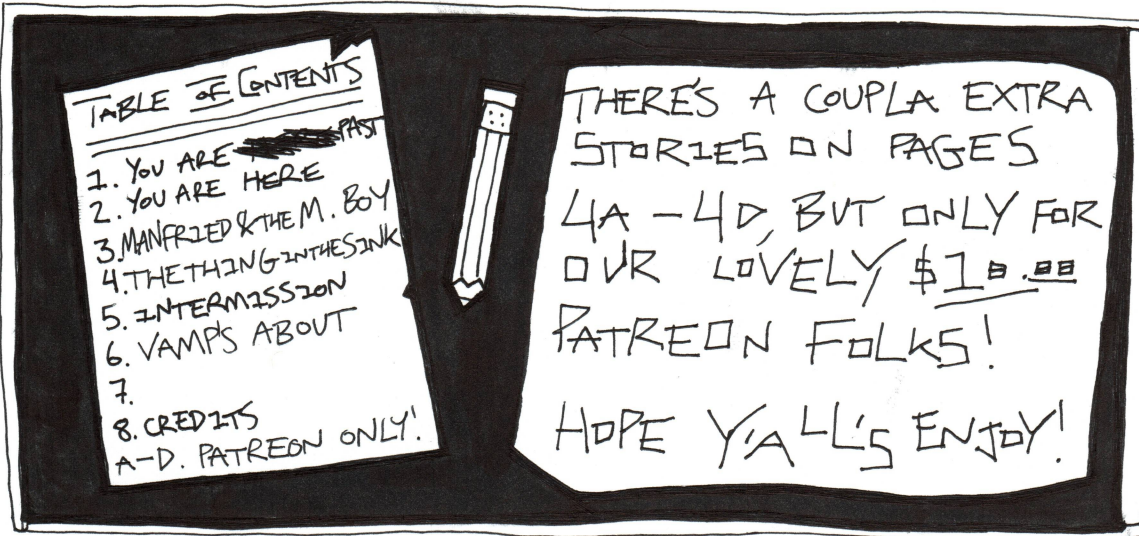 TABLE OF CONTENTS
1. YOU ARE PAST
2. YOU ARE HERE
3. MANFRIED & THE M. BOY
4. THE THING IN THE SINK
5. INTERMISSION
6. VAMP'S ABOUT
7.
8. CREDITS
A-D. PATREON ONLY!
THERE'S A COUPLA EXTRA
STORIES ON PAGES
4A - 4D, BUT ONLY FOR
OUR LOVELY $10.00
PATREON FOLKS!
HOPE Y'ALL'S ENJOY!